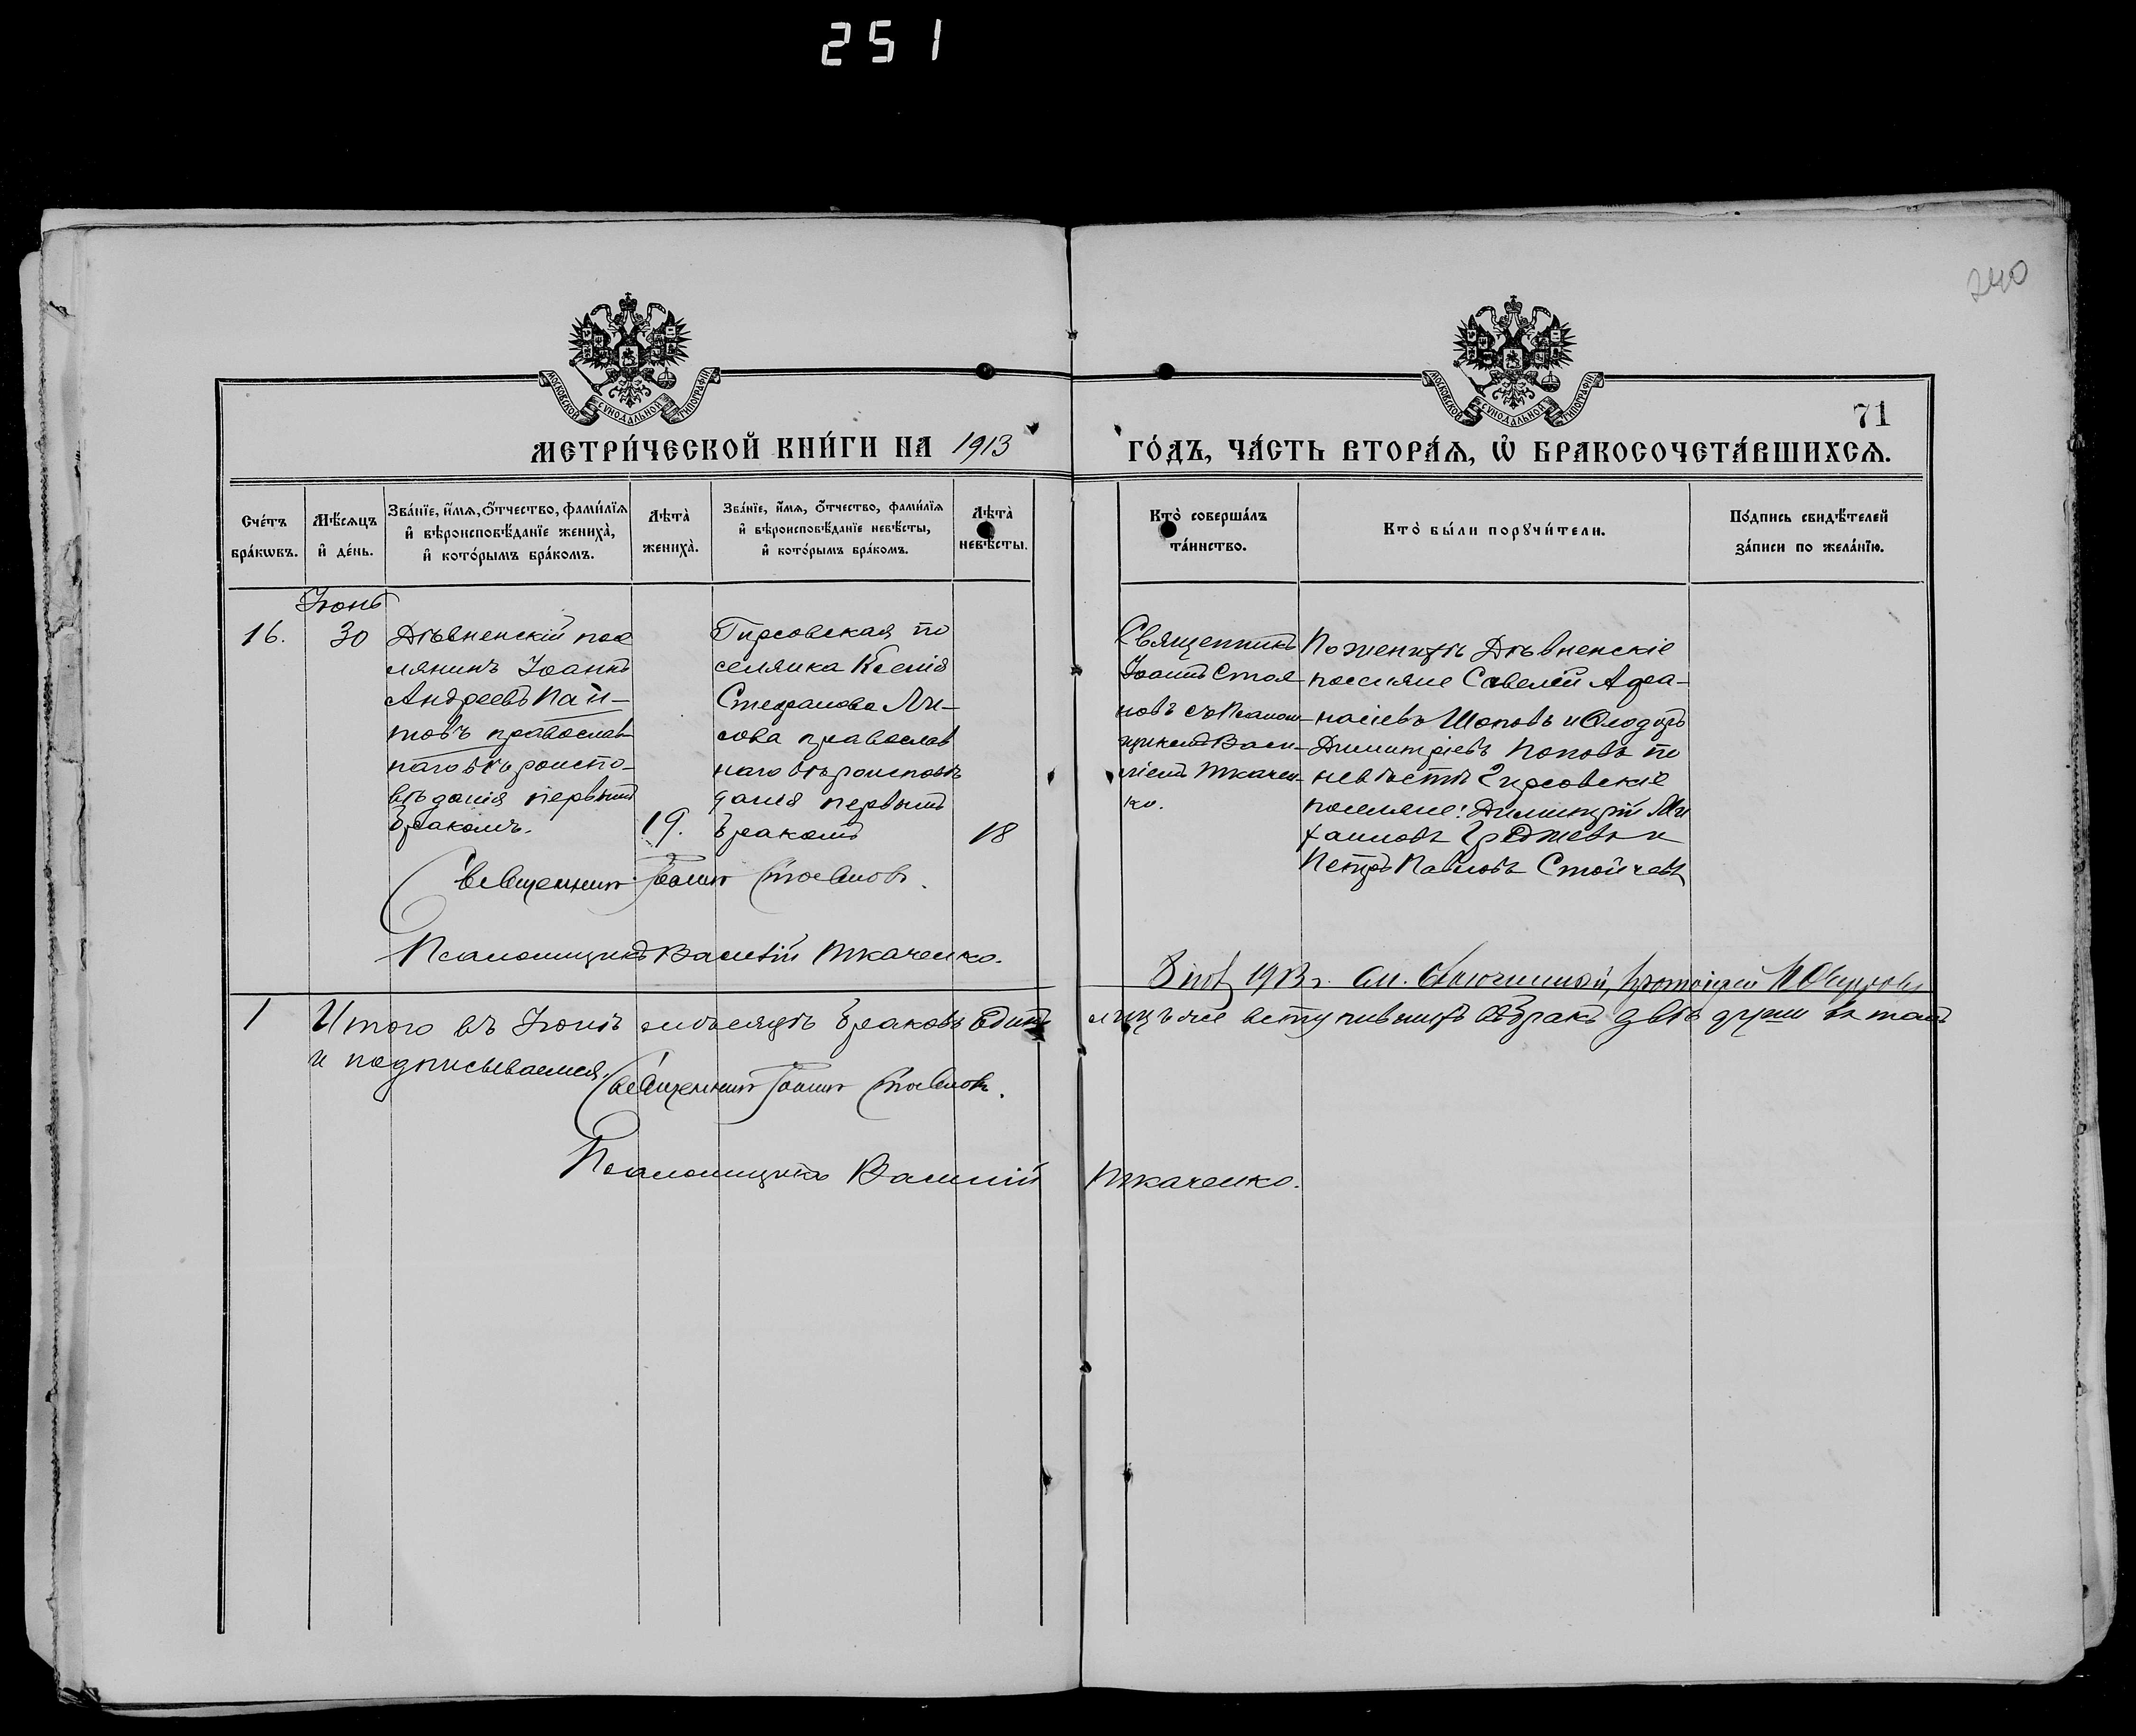 251
240
МОСКОВСКОЙ СУНОДАЛЬНОЙ ТИПОГРАФІИ
МОСКОВСКОЙ СУНОДАЛЬНОЙ ТИПОГРАФІИ
71
МЕТРИ́ЧЕСКОЙ КНИ́ГИ НА 1913
ГО́ДЪ, ЧА́СТЬ ВТОРА́Ѧ, Ѡ҆ БРАКОСОЧЕТА́ВШИХСѦ.
Сче́тъ
бра́кѡвъ.
Мѣ́сяцъ
и҆ де́нь.
Зва́нїе, и҆́мя, ѻ҆́тчество, фами́лїя
и҆ вѣроисповѣ́данїе жениха̀,
и҆ кото́рымъ бра́комъ.
Лѣта̀
жениха̀.
Зва́нїе, и҆́мя, ѻ҆́тчество, фами́лїя
и҆ вѣроисповѣ́данїе невѣ́сты,
и҆ кото́рымъ бра́комъ.
Лѣта̀
невѣ́сты.
Кто̀ соверша́лъ
та́инство.
Кто̀ бы́ли порꙋчи́тели.
По́дпись свидѣ́телей
за́писи по жела́нїю.
Іюнь
16.
30
Дѣвненскій посе
лянинъ Іоаннъ
Андреевъ Пай-
товъ православ
наго вѣроиспо-
вѣданія первымъ
бракомъ.
19.
Гирсовская по
селянка Ксенія
Стефанова Ли-
сова православ
наго вѣроисповѣ
данія первымъ
бракомъ
18
Священникъ
Іоаннъ Стоя-
новъ съ Псалом-
щикомъ Васи-
ліемъ Ткачен-
ко.
По женихѣ Дѣвненскіе
поселяне Савелій Афа-
насіевъ Шоповъ и Ѳлодоръ
Димитріевъ Поповъ по
невѣстѣ Гирсовскіе
поселяне: Димитрій Ми
хаиловъ и
Петръ Павловъ Стойчевъ
Священникъ Іоаннъ Стояновъ.
Псаломщикъ Василій Ткаченко.
1913 г. протоіерей
1
Итого въ Іюнѣ мѣсяцѣ браковъ Единъ
лицъ же вступившихъ въ бракъ двѣ души въ томъ
и подписываемся.
Священникъ Іоаннъ Стояновъ.
Псаломщикъ Василій Ткаченко.